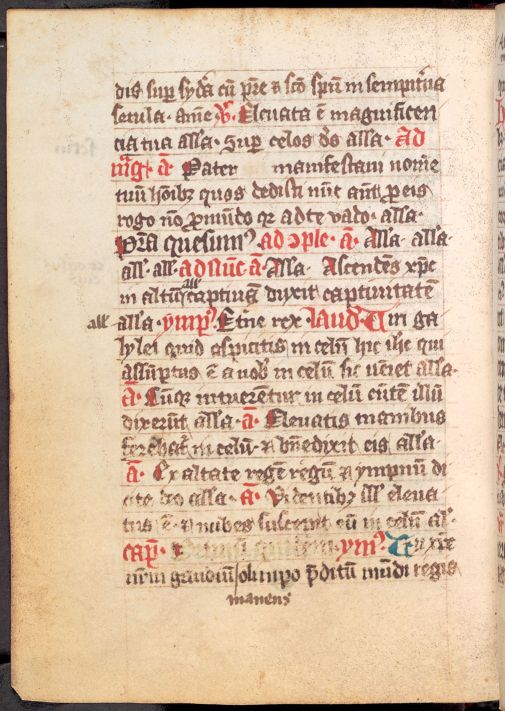 dis sup sydͣa cū pr̄e ⁊ scō spū in sempit̄na
secula · amē ℣. Eleuata ē magnificen
cia tua alla · Sup celos ds̄ alla · Ad
mg̅t · a̅ · Pater manifestaui nome̅
tuū hōibꝫ quos dedisti nūc aūt ꝓ eis
rogo nō ꝓ mūndo qr ad te vado · alla ·
Or̄a quesumꝰ · ad ꝯple · a̅ · Alla · alla ·
all · all · ad nūc a̅ · Alla · Ascendēs xp̄c
all
in altū captiuā duxit captiuitatē
all alla · ympꝰ · Et̄ne rex · laud Uiri ga
lylei quid aspicitis in celū hic ih̄c qui
assūptus ē a uob̄ in celū sic ueiet alla ·
a̅ · Cūqꝫ intuerentur in celū eūtē illū
dixerūt alla · a̅ · Eleuatis manibus
ferebat̄ in celū · ⁊ bn̄edixit eis alla ·
a̅ · Exaltate regē regū ⁊ ympnū di
cite deo alla · a̅ · Videntibꝫ ill̄ eleua
tus ē · ⁊ nubes suscepit eū in celū al̄ ·
cap̅ · ympꝰ · Tu xp̄e
nr̄m gaudiū olimpo p̄ditū mūdi regis
manens